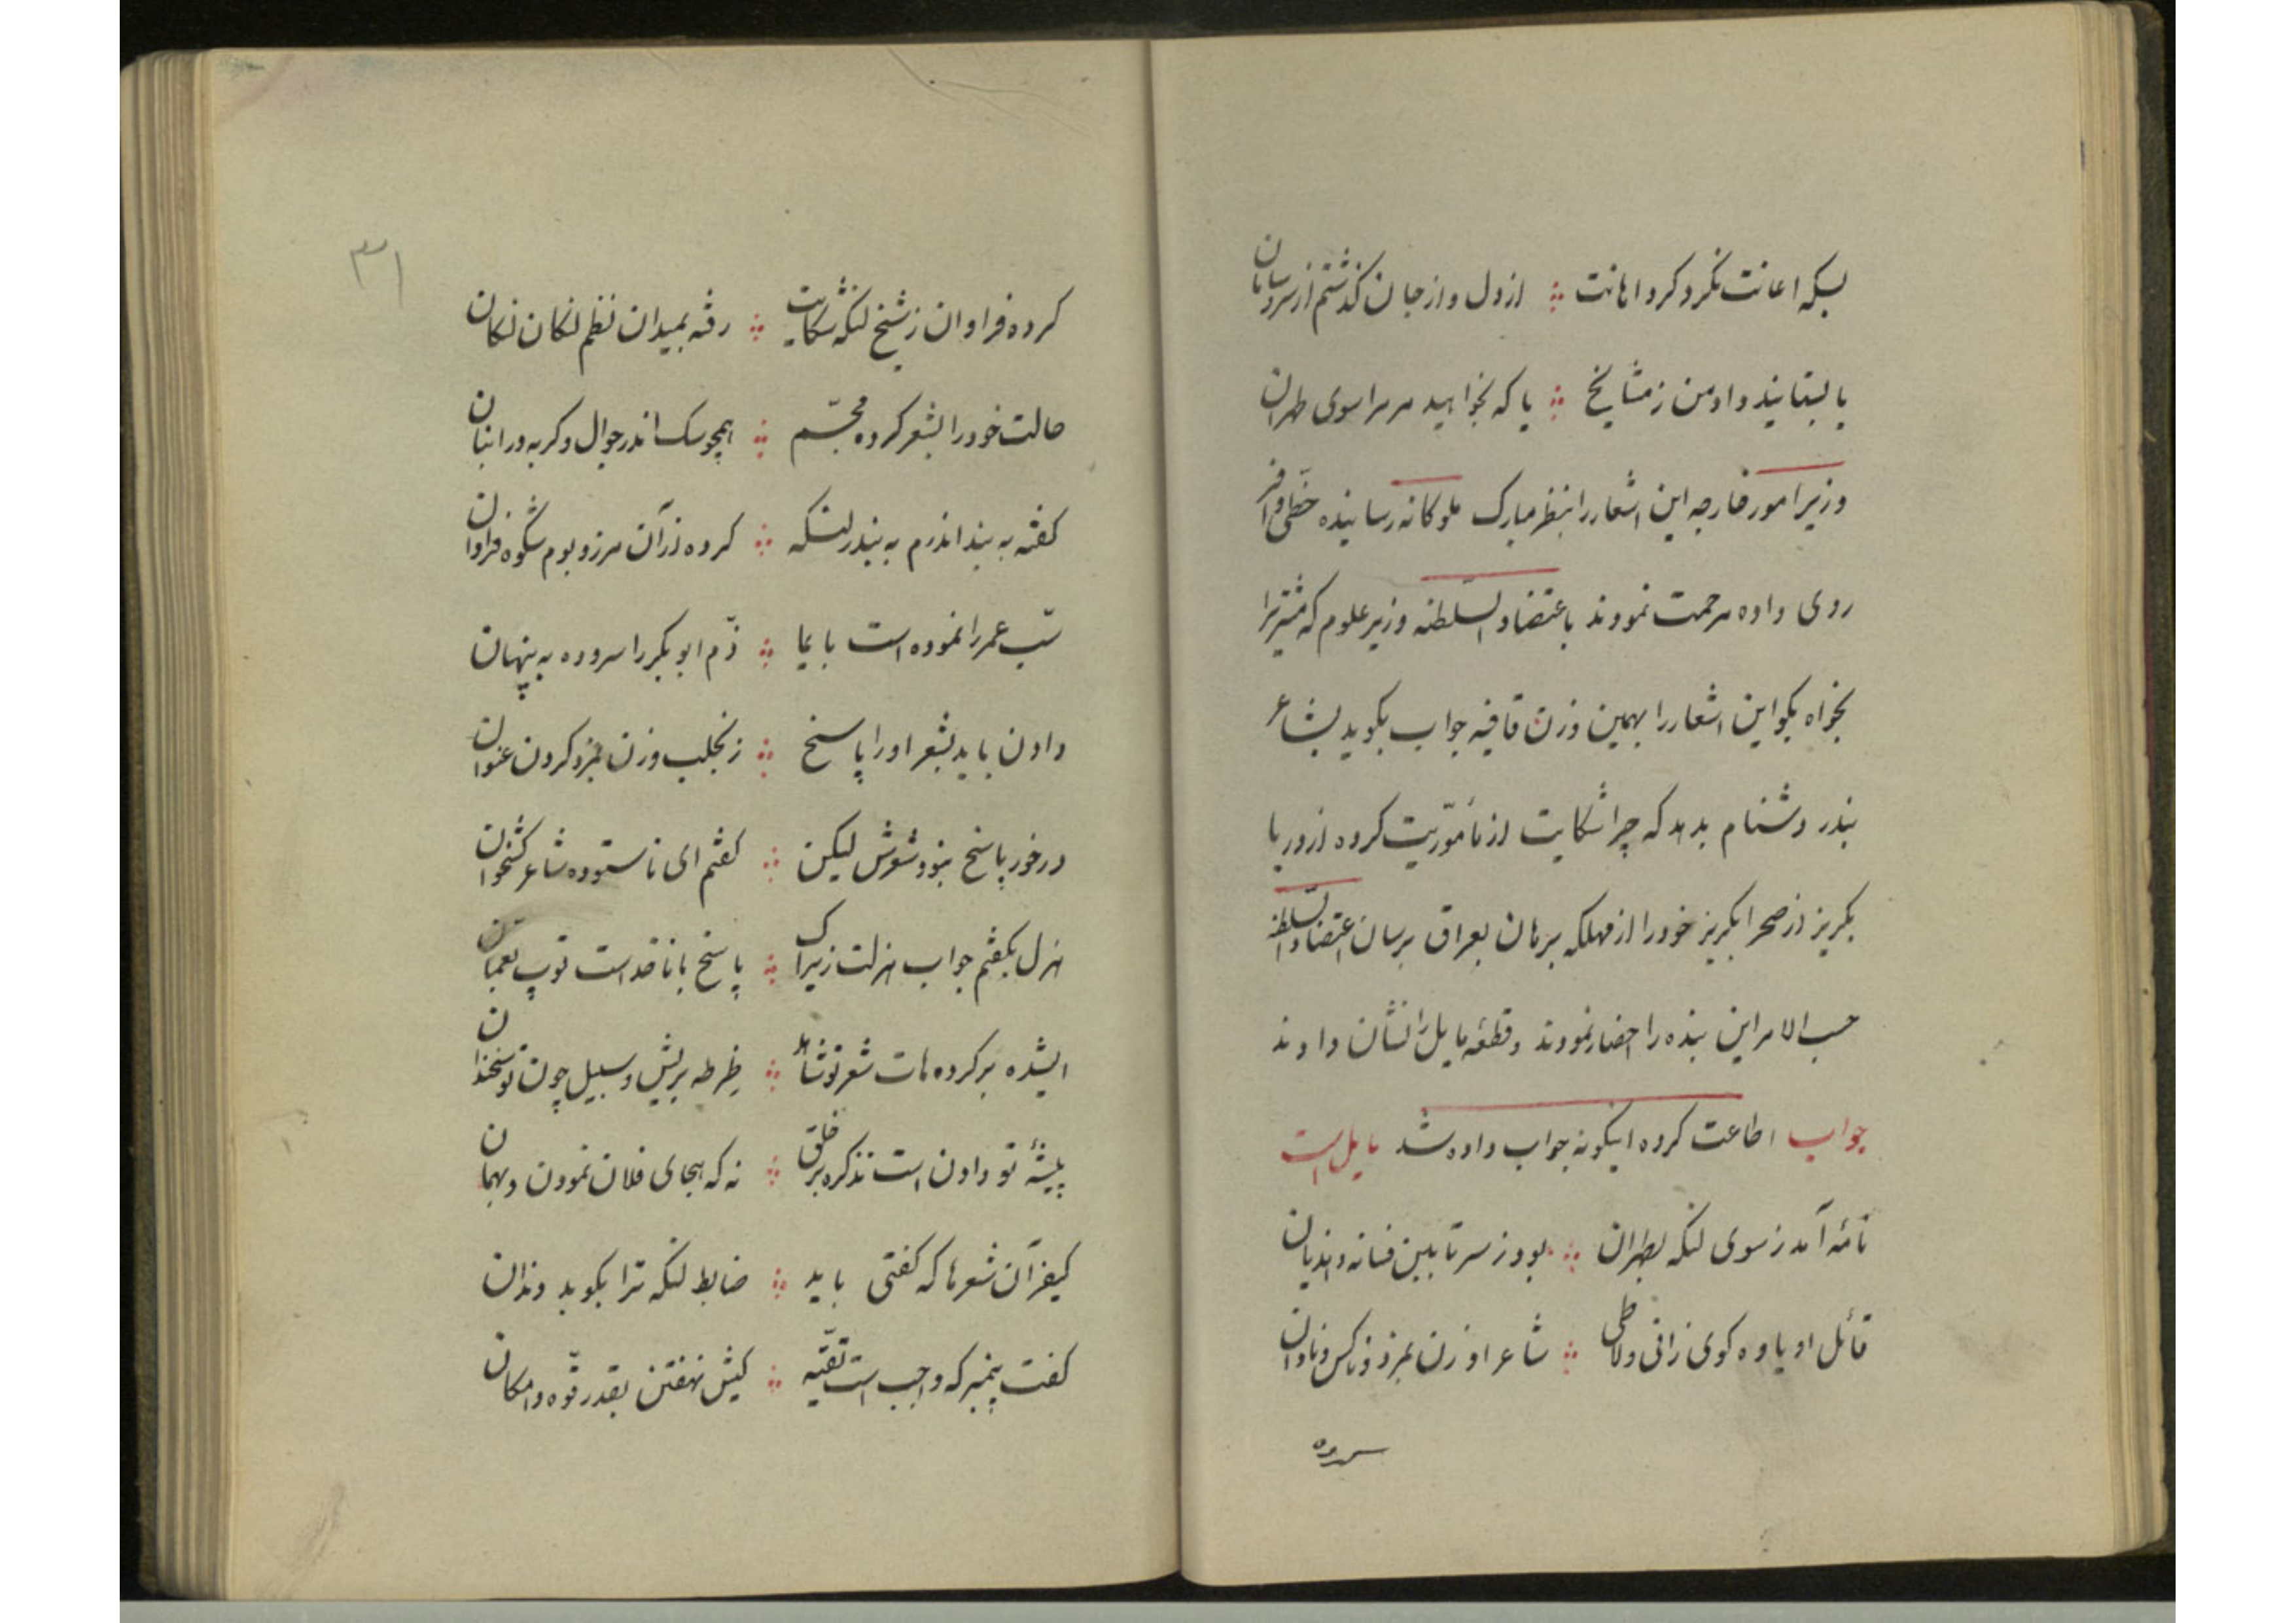 بسکه اعانت نکرد کرد اهانت ∴ از دل و از جان گذشتم از سر و سامان
یا بستانید داد من ز مشایخ ∴ یا که بخواهید مر مرا سوی طهران
وزیر امور خارجه این اشعار را بنظر مبارک ملوکانه رسانیده حظی وافر
روی داده مرحمت نمودند باعتضاد السلطنه وزیر علوم که مشتری را
بخواه بگو این اشعار را بهمین وزن قافیه جواب بگوید بشاعر
بندر دشنام بدهد که چرا شکایت از مأموریت کرده از دریا
بگریز از صحرا بگریز خود را از مهلکه برهان بعراق برسان اعتضاد السلطنه
حسب الامر این بنده را احضار نمودند و قطعه مایل را نشان دادند
جواب اطاعت کرده اینگونه جواب داده شد مایل است
نامه آمد ز سوی لنگه بطهران ∴ بود ز سر تا ببین فسانه و هذیان
قائل او یاوه گوی زانی و لاطی ∴ شاعر او زن بمزد و ناکس و نادان
سروده
۳۱
کرده فراوان ز شیخ لنگه شکایت ∴ رفته بمیدان نظم لنگان لنگان
حالت خود را بشعر کرده مجسّم ∴ همچو سک اندر جوال و کربه در انبان
کفته به بند اندرم به بندر لنگه ∴ کرده از آن مرز و بوم شکوه فراوان
سبّ عمر را نموده است بایما ∴ ذمّ ابو بکر را سروده به پنهان
دادن باید بشعر او را پاسخ ∴ ز نجلب و زن بمزد کردن عنوان
در خور پاسخ نبود شعرش لیکن ∴ کفتم ای ناستوده شاعر کشخوان
هزل بکفتم جواب هزلت زیراک ∴ پاسخ باناقد است توپ بعمان
ایشده بر کرده هات شعر تو شاهد ∴ ضرطه بریش و سبیل چون تو سخندان
پیشهٔ تو دادن است تذکره بر خلق ∴ نه که هجای فلان نمودن و بهمان
کیفر آن شعرها که کفتی باید ∴ ضابط لنگه ترا بکوبد دندان
کفت پیمبر که واجب است تقیّه ∴ کیش نهفتن بقدر قوّه و امکان